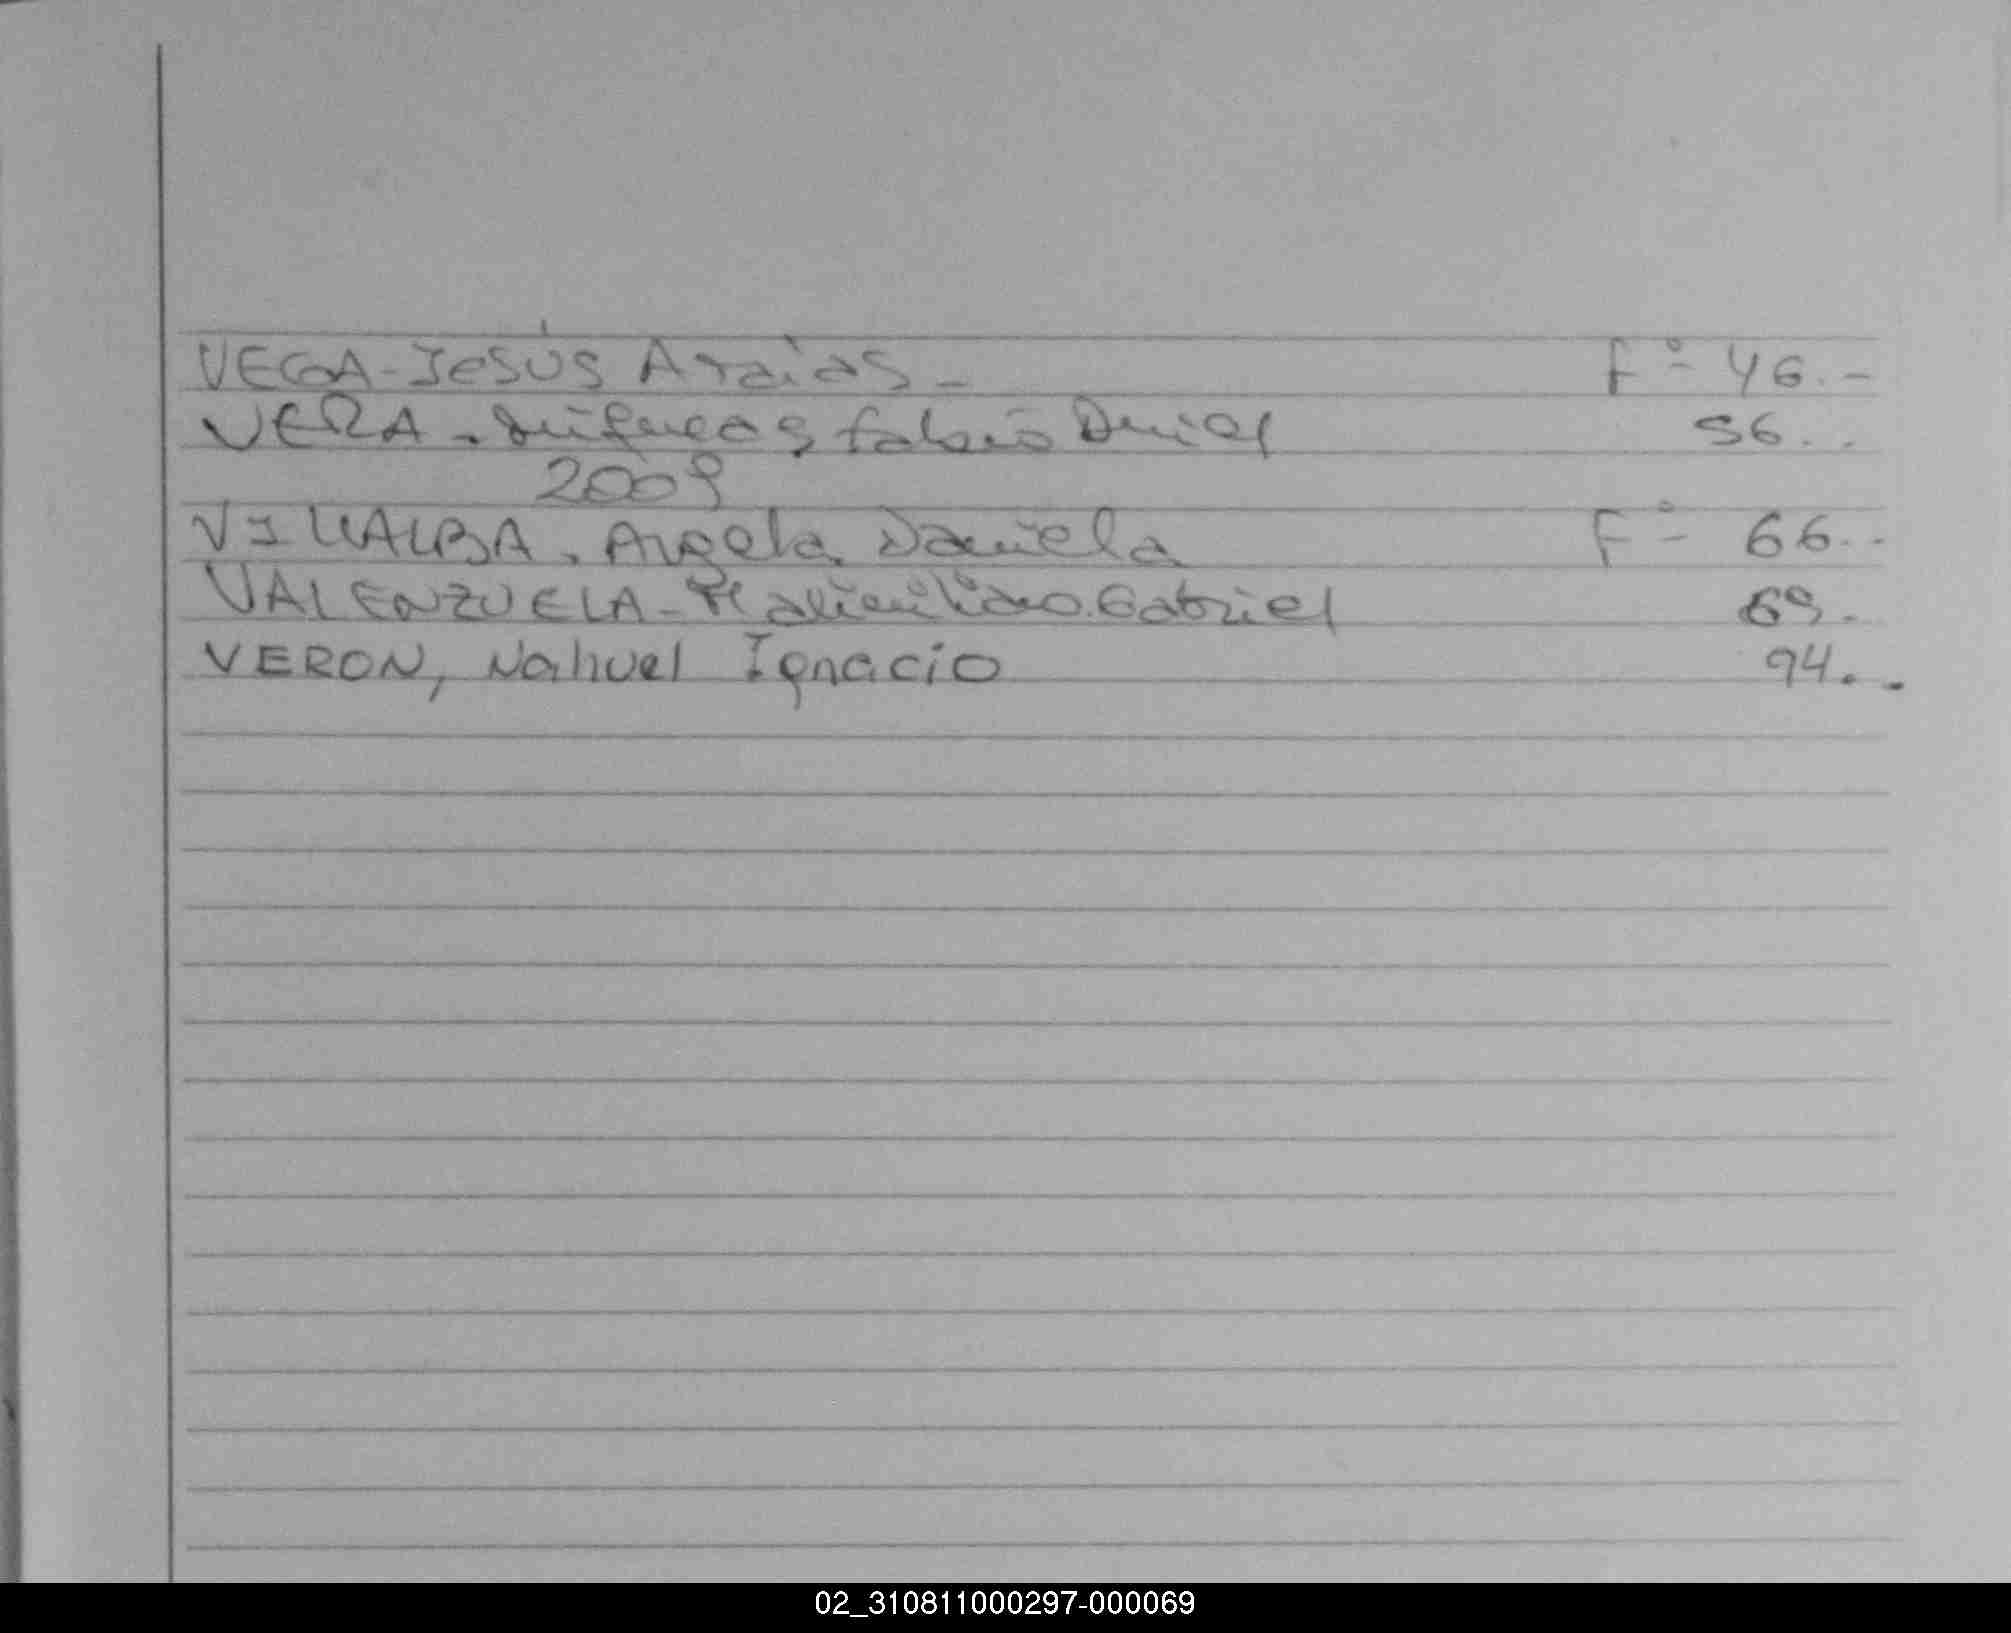 VEGA - Jesús
F° 46.-
VERA - Fabio Daniel
56..
2009
VILLALBA. Angela Daniela
F° 66..
VALENZUELA - Maximiliano Gabriel
69.
VERON, Nahuel Ignacio
94..
02_310811000297-000069